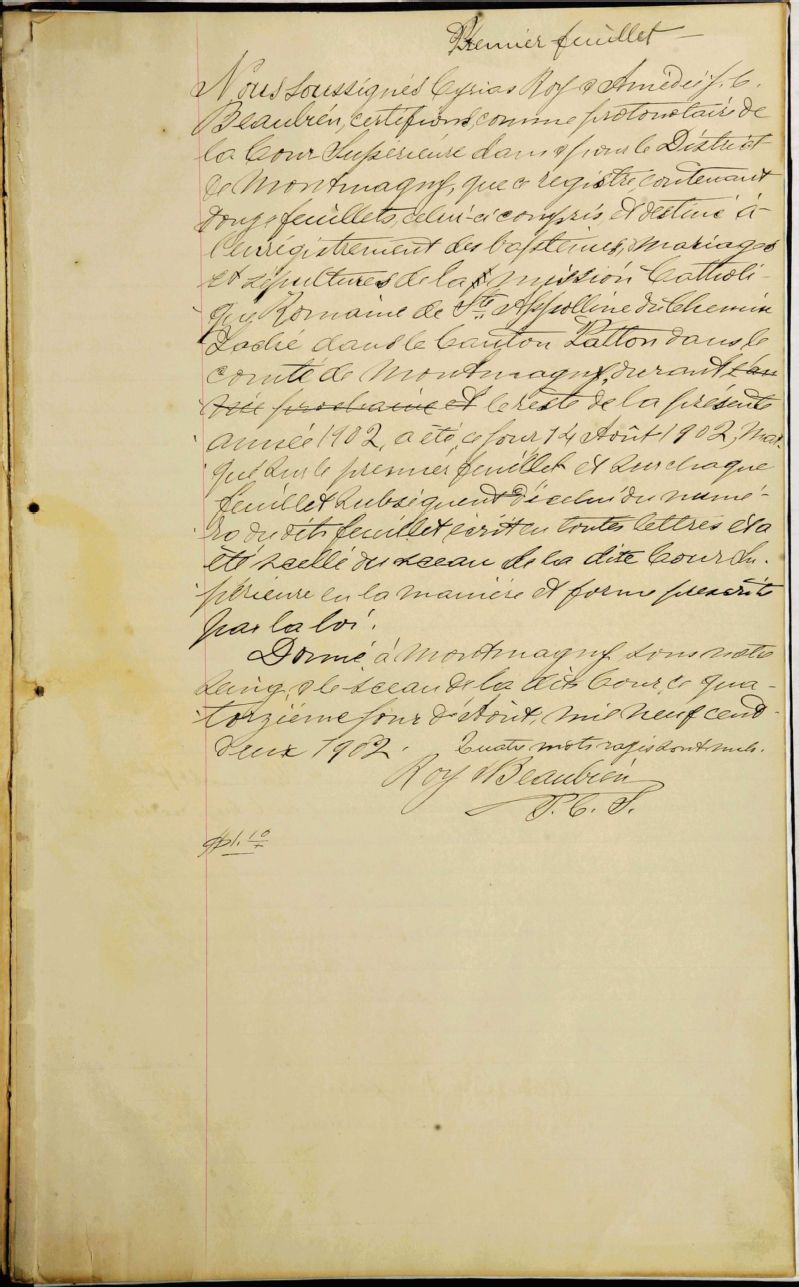 Premier feuillet —
Nous soussignés Cyrias Roy & Amédée J. C.
Beaubien, certifions, comme protonotaire de
la Cour Supérieure dans & pour le District
de Montmagny, que ce registre contenant
douze feuillets, celui-ci compris et destiné à
l'enrégistrement des baptêmes, mariages
et sépultures de la mission Catholi-
que Romaine de Ste Appolline du Chemin
Taché dans le Canton Patton dans le
comté de Montmagny, durant l'an
née prochaine et le reste de la présente
année 1902, a été, ce jour 14 Août 1902, mar-
qué sur le premier feuillet et sur chaque
feuillet subséquent d'icelui du numé-
ro du dit feuillet écrit en toutes lettres et a
été scellé du sceau de la dite Cour Su-
périeure en la manière et forme prescrite
par la loi.
Donné à Montmagny sous notre
seing & le sceau de la dite Cour, ce qua-
torzième jour d'Août, mil neuf cent
deux 1902. Quatre mots rayés sont nuls.
Roy & Beaubien
P. C. S.
$1.10